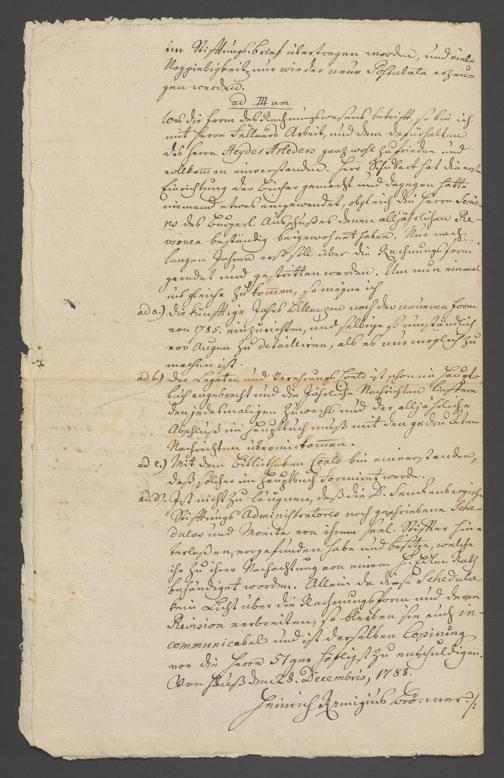 im Stifftungs-brief übertragen worden, und viele
Nachgiebigkeit nur wieder neue Postulata erzeu-
gen werden.
ad III um
Was die Form des Rechnungswesens betrifft, so bin ich
mit Herrn Füllners Arbeit, und dem dafürhalten
des Herrn Heyder Arleders ganz wohl zufrieden und
vollkommen einverstanden. Herr Schubart hat die erste
Einrichtung der Bücher gemacht und dagegen hatte
niemand etwas eingewendet, obgleich die Herrn Senio-
res des burgerl. Ausschusses denen alljährlichen Re-
visionen beständig beigewohnt haben. Nur nach
langen Jahren erst soll über die Rechnungsform
geredet und gestritten werden. Um nun einmal
ins gleiche zu kommen, so mögen ich
ad a.) die künfftige Jahrs Billanzen nach der neueren Form
von 1785. einzurichten, und selbige so umständlich
vor Augen zu detailliren, als es nur möglich zu
machen ist.
ad b.) der Legaten und Verehrungs Conto ist schon im Haupt-
buch angebracht und die Jährliche Nachrichten liefern
den jedesmaligen Zuwachs und der alljährliche
Abschluß im Hauptbuch muß mit den gedruckten
Nachrichten übereinkommen.
ad c.) Mit dem Bibliotheken Conto bin einverstanden,
daß solcher im Hauptbuch formirt werde.
ad d. Ist nicht zu läugnen, daß die D. Senkenbergische
Stifftungs Administratores noch geschriebene Sche-
dulas und Monita von ihrem seel. Stiffter hin-
terlassen, vorgefunden habe und besitze, welche
ihr zu ihrer Nachachtung von einem H. Edlen Rath
behändiget worden. Allein da diese Schedulae
kein Licht über die Rechnungsform und deren
Revision verbreiten, so bleiben sie auch in-
communicabel und ist derselben Copirung
vor die Herrn 51ger höfligst zu entschuldigen.
Von Hauß den 28. Decembris, 1788.
Heinrich Remigius Brönner